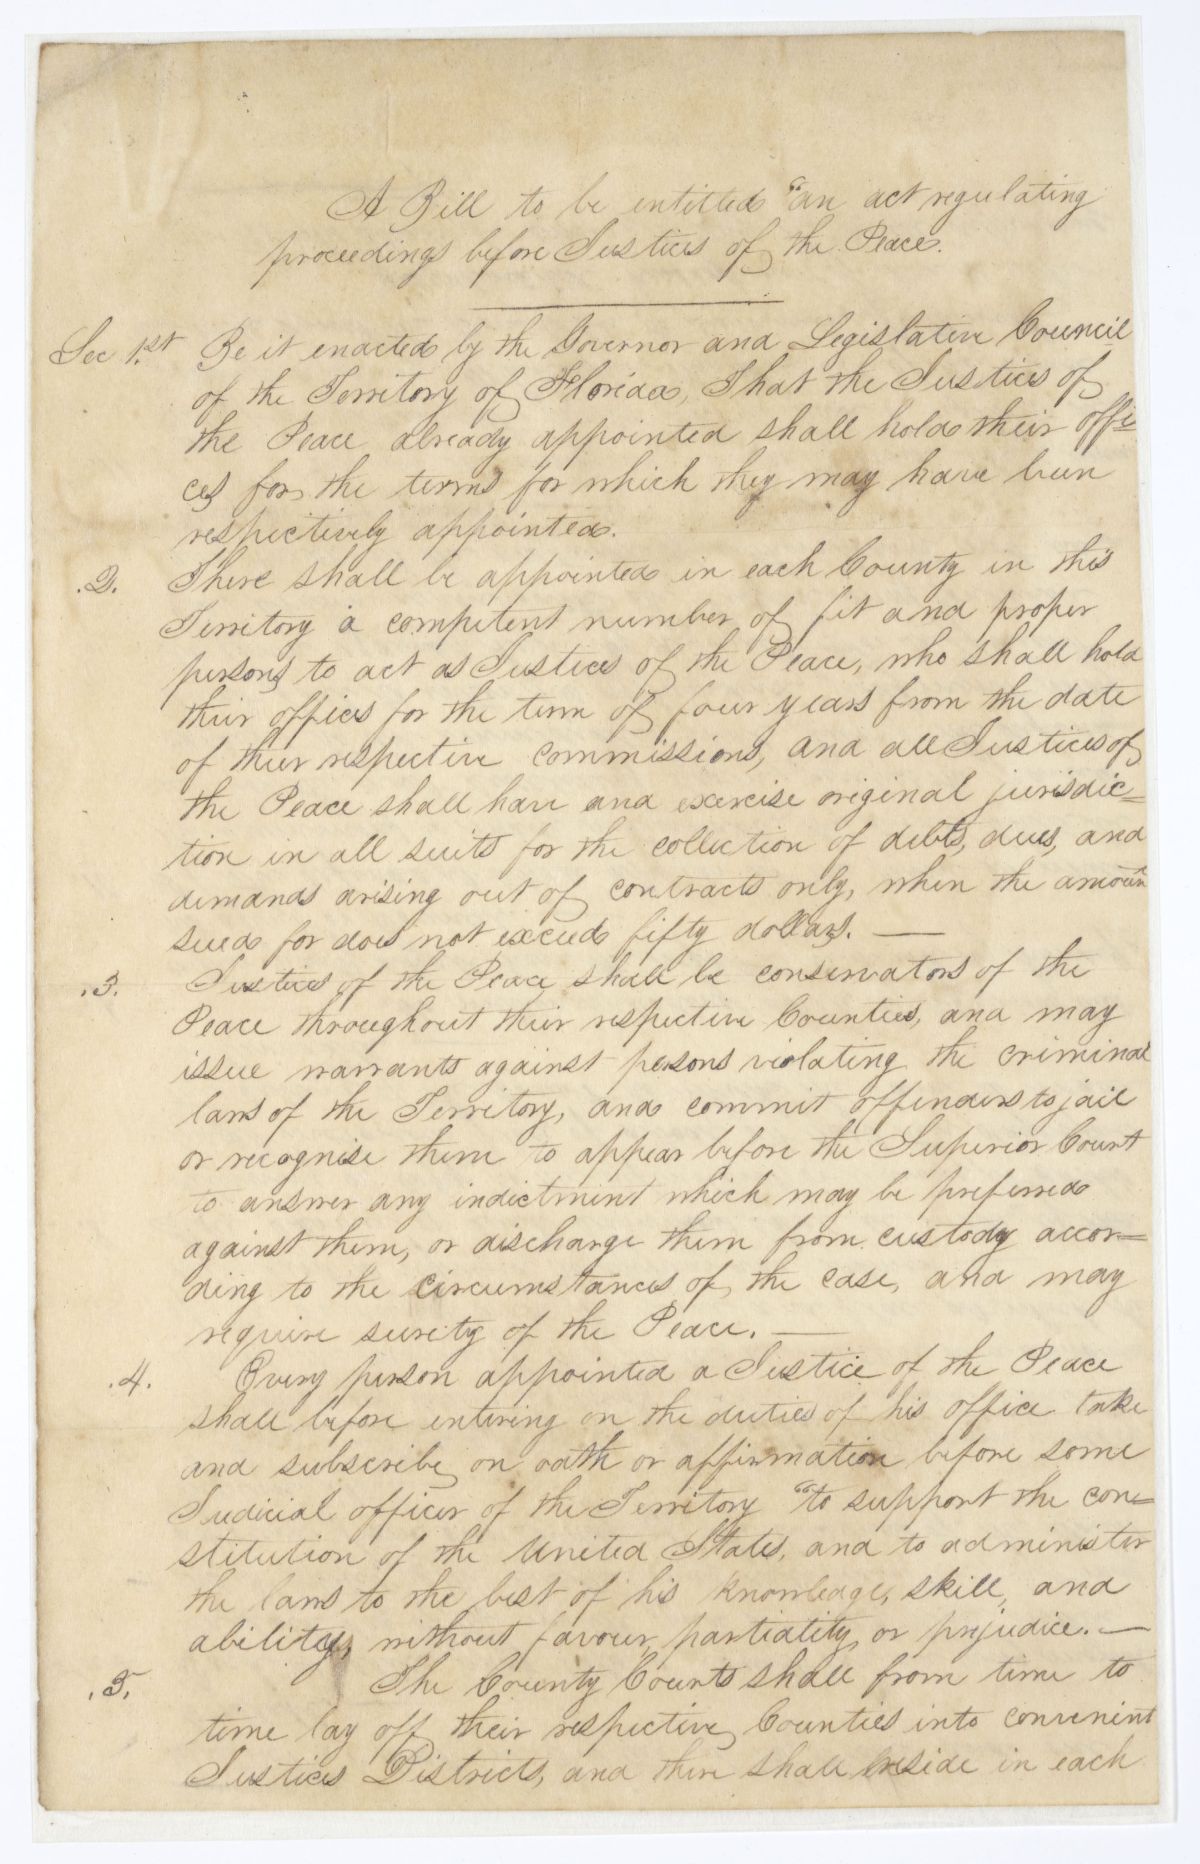 A Bill to be entitled "an act regulating
proceedings before Justices of the Peace.
Sec 1.st Be it enacted by the Governor and Legislative Council
of the Territory of Florida, That the Justices of
the Peace already appointed shall hold their offi=
ces for the terms for which they may have been
respectively appointed.
.2. There shall be appointed in each County in this
Territory a competent number of fit and proper
persons to act as Justices of the Peace, who shall hold
their offices for the term of four years from the date
of their respective commissions, and all Justices of
the Peace shall have and exercise original jurisdic=
tion in all suits for the collection of debts, dues, and
demands arising out of contracts only, when the amount
sued for does not exceed fifty dollars. —
.3. Justices of the Peace shall be conservators of the
Peace throughout their respective Counties, and may
issue warrants against persons violating the criminal
laws of the Territory, and commit offenders to jail
or recognise them to appear before the Superior Court
to answer any indictment which may be preferred
against them, or discharge them from custody accor=
ding to the circumstances of the case, and may
require surety of the Peace. —
.4. Every person appointed a Justice of the Peace
shall before entering on the duties of his office take
and subscribe on oath or affirmation before some
Judicial officer of the Territory "to support the con=
stitution of the United States, and to administer
the laws to the best of his knowledge, skill, and
ability, without favour, partiality, or prejudice. —
.5. The County Courts shall from time to
time lay off their respective Counties into convenient
Justices Districts, and there shall reside in each